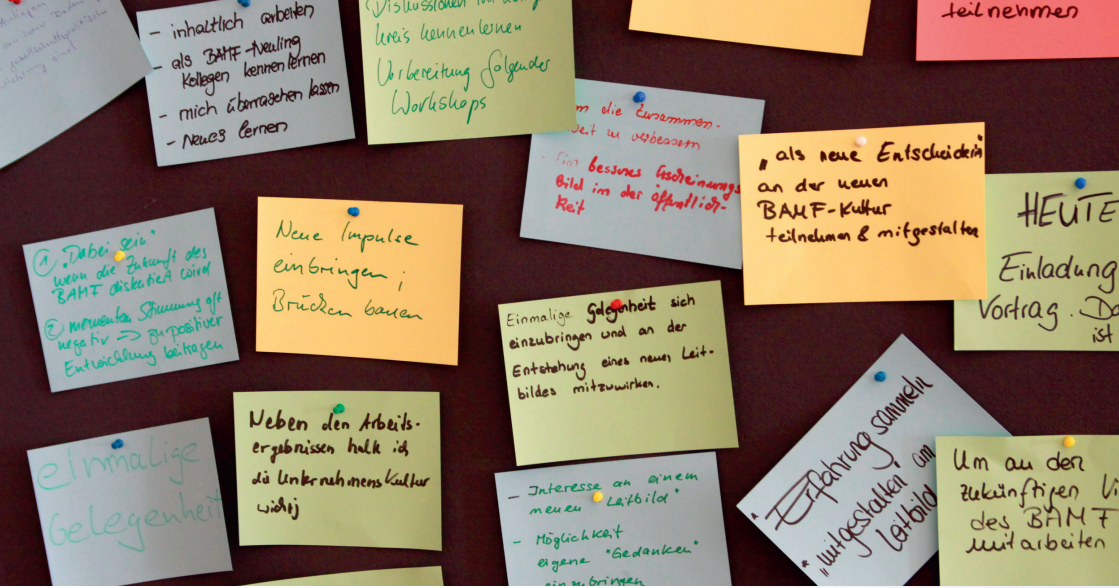 - inhaltlich arbeiten
- als BAMF-Neuling
Kollegen kennenlernen
- mich überraschen lassen
- Neues lernen
Diskussionen im
kreis kennenlernen
Vorbereitung folgender
Workshops
teilnehmen
die Zusammen-
zu verbessern
- Ein besseres Erscheinungs
Bild in der öffentlich-
keit
"als neue Entscheiderin"
an der neuen
BAMF-Kultur
teilnehmen & mitgestalten
HEUTE
Einladung
Vortrag. Da
ist
① "Dabei sein"
wenn die Zukunft des
BAMF diskutiert wird
② momentan Stimmung oft
negativ => zu positiver
Entwicklung beitragen
Neue Impulse
einbringen;
Brücken bauen
Einmalige Gelegenheit sich
einzubringen und an der
Entstehung eines neuen Leit-
bildes mitzuwirken.
einmalige
Gelegenheit
Neben den Arbeits-
ergebnissen halte ich
die Unternehmenskultur
wichtig
- Interesse an einem
neuen "Leitbild"
- Möglichkeit
eigene "Gedanken"
einzubringen
Erfahrung sammeln
"mitgestalten" am
Leitbild
Um an den
zukünftigen Vi
des BAMF
mitarbeiten